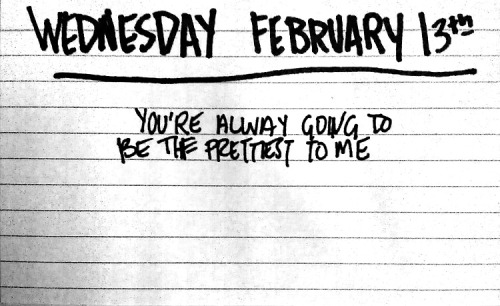 WEDNESDAY FEBRUARY 13th
YOU'RE ALWAY GOING TO
BE THE PRETTIEST TO ME